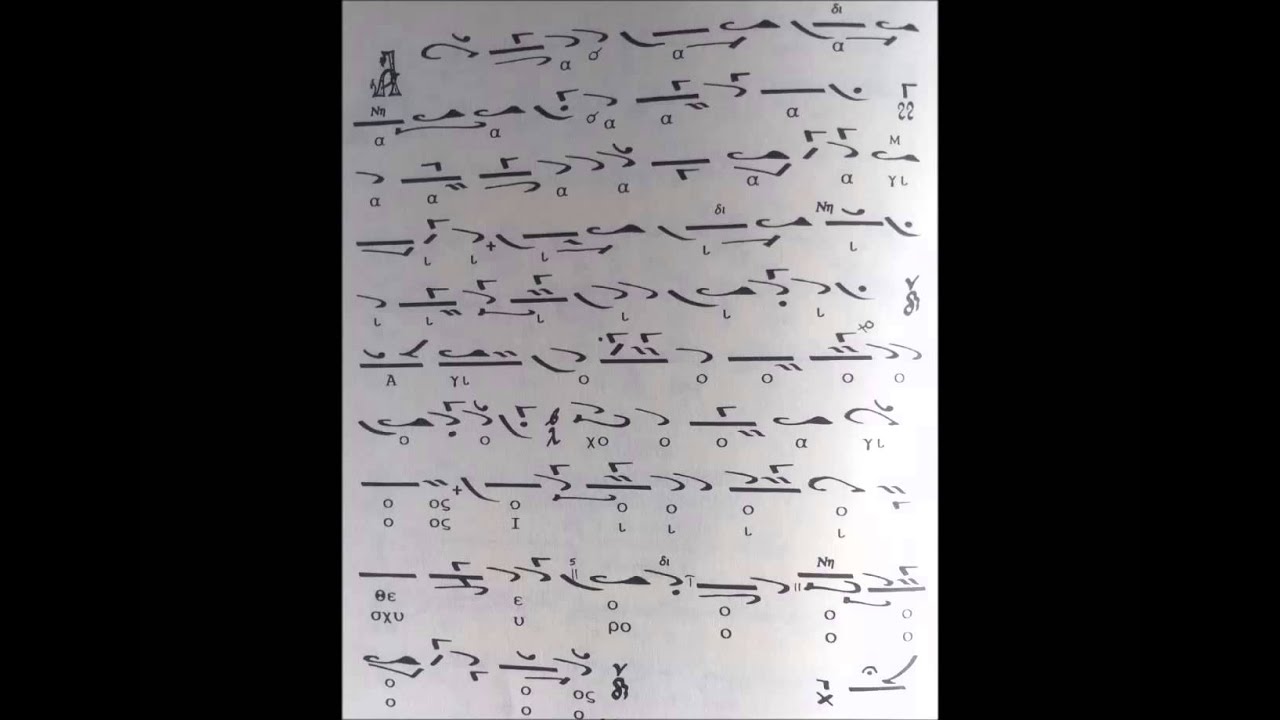 δι
α α α
Νη
α α α α α
Μ
α α α α α α γι
δι Νη
ι ι ι ι ι
ι ι ι ι ι ι
Α γι ο ο ο ο ο
ο ο χο ο ο α γι
ο ος ο ο ο ο ο
ο ος Ι ι ι ι ι
δι Νη
θε ε ο ο ο ο
σχυ υ ρο ο ο ο
ο ο ος
ο ο ο